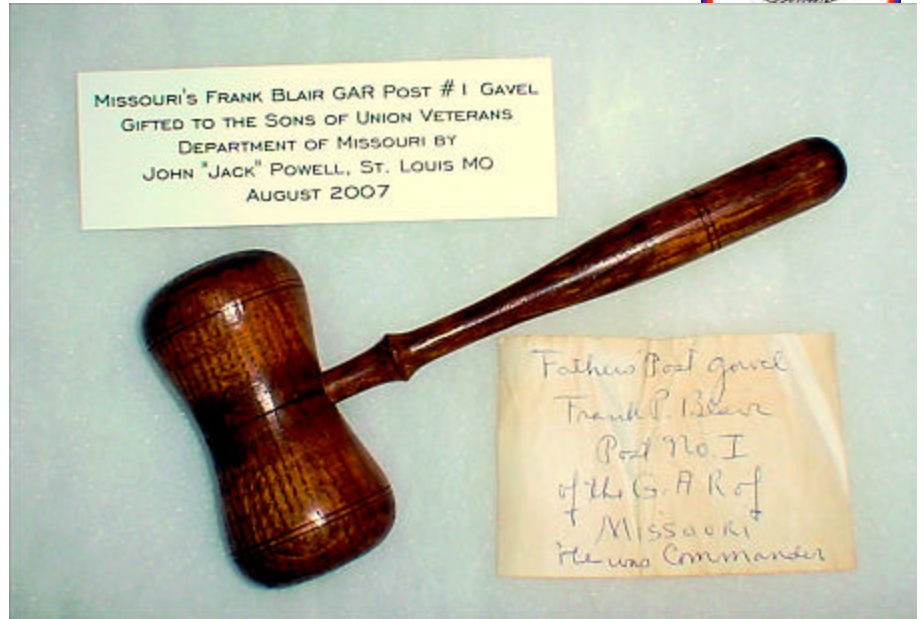 Missouri's Frank Blair GAR Post #1 Gavel
Gifted to the Sons of Union Veterans
Department of Missouri by
John "Jack" Powell, St. Louis MO
August 2007
Fathers Post gavel
Frank P. Blair
Post No. I
of the G. A R of
Missouri
He was Commander